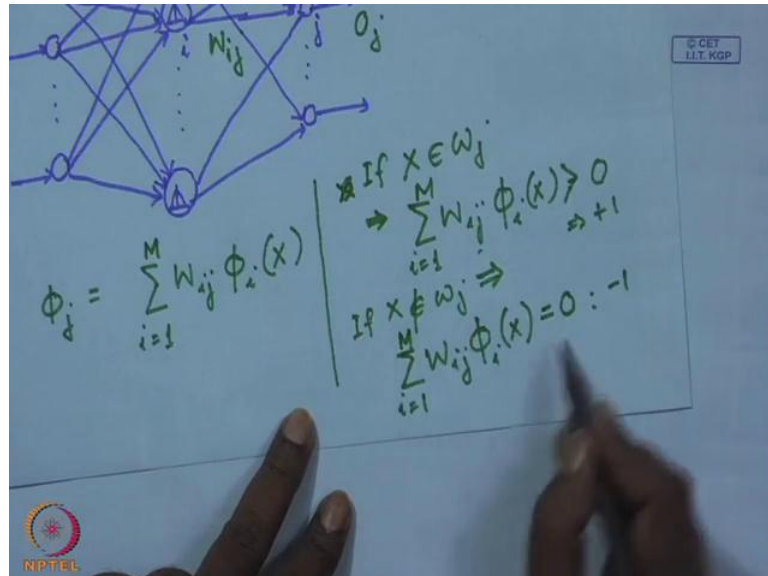 i W_ij j O_j
© CET
I.I.T. KGP
ϕ_j = Σ_{i=1}^{M} W_ij ϕ_i(x)
If X ∈ ω_j
⇒ Σ_{i=1}^{M} W_ij ϕ_i(x) > 0
⇒ +1
If X ∉ ω_j ⇒
Σ_{i=1}^{M} W_ij ϕ_i(x) = 0 : -1
NPTEL